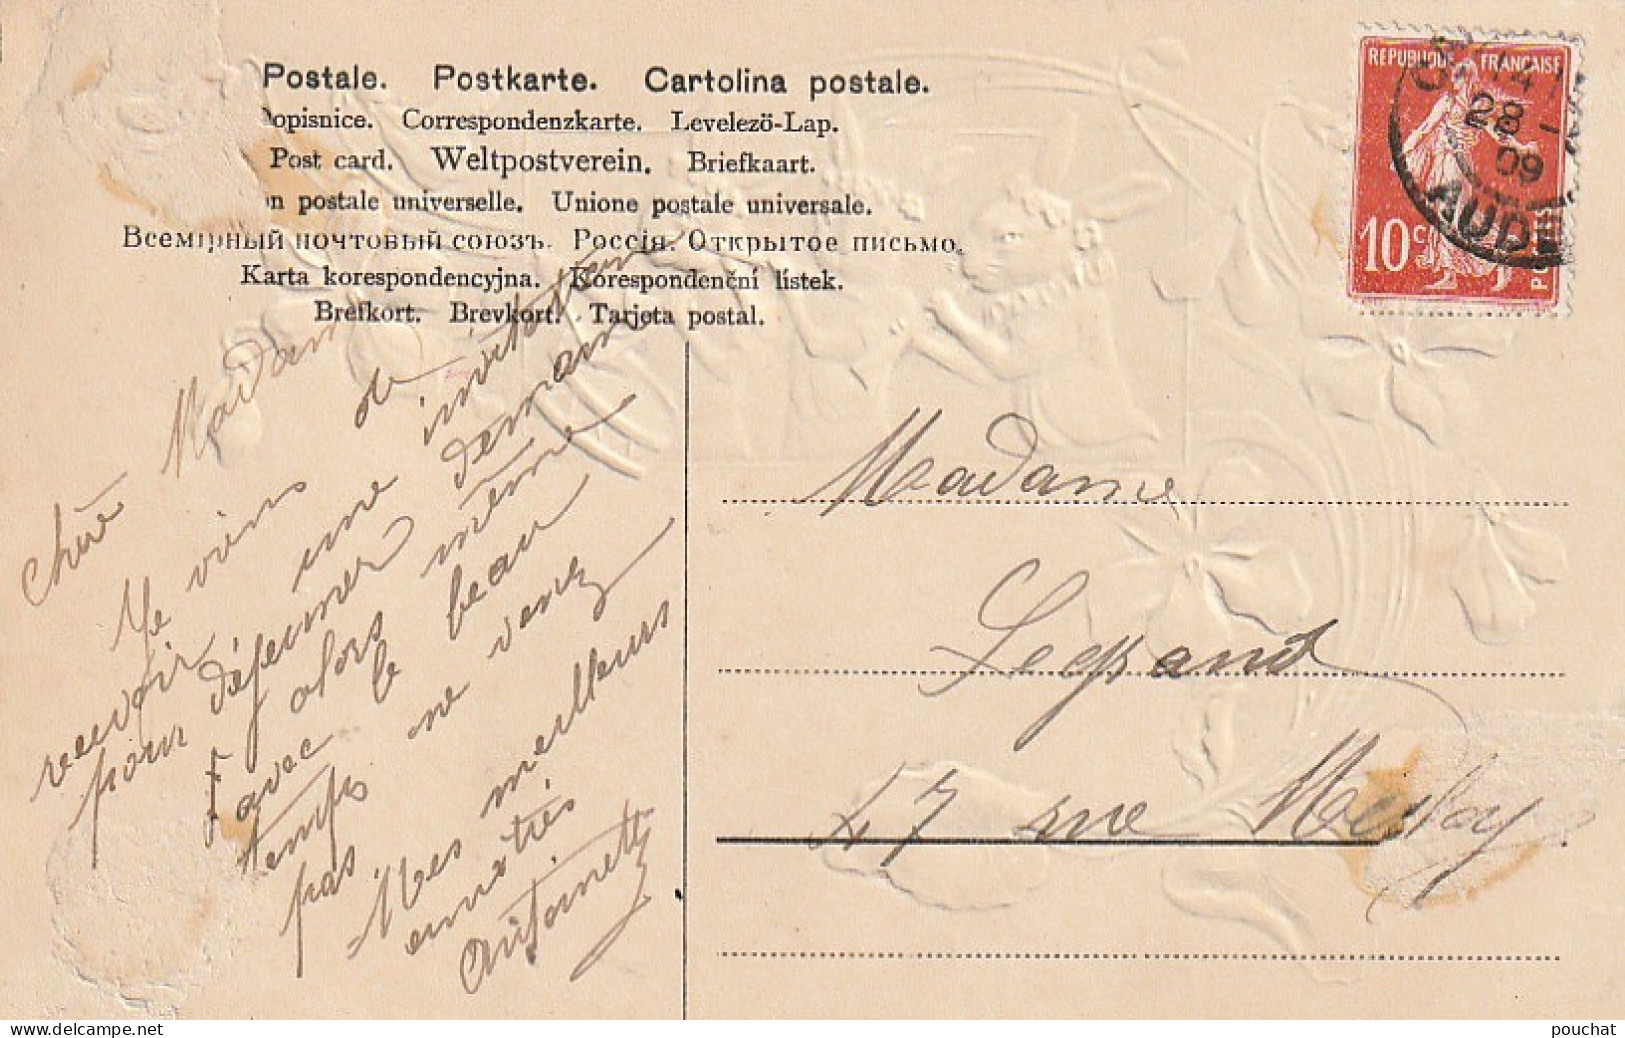 Postale. Postkarte. Cartolina postale.
Dopisnice. Correspondenzkarte. Levelező-Lap.
Post card. Weltpostverein. Briefkaart.
n postale universelle. Unione postale universale.
Всемірный почтовый союзъ. Россія. Открытое письмо.
Karta korespondencyjna. Korespondenční lístek.
Brefkort. Brevkort. Tarjeta postal.
REPUBLIQUE FRANÇAISE
10 c
POSTES
28
09
AUDE
Chère Madame
Je viens de
recevoir une invitation
pour déjeuner demain
alors même
avec le beau
temps ne venez
pas.
Mes meilleurs
amitiés
Antoinette
Madame
Legrand
47 rue
delcampe.net
pouchat